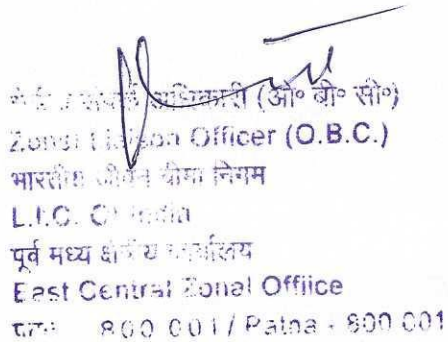 संपर्क अधिकारी (ओ॰ बी॰ सी॰)
Zonal Liaison Officer (O.B.C.)
भारतीय जीवन बीमा निगम
L.I.C. Of India
पूर्व मध्य क्षेत्रीय कार्यालय
East Central Zonal Offiice
पटना 800 001 / Patna - 800 001